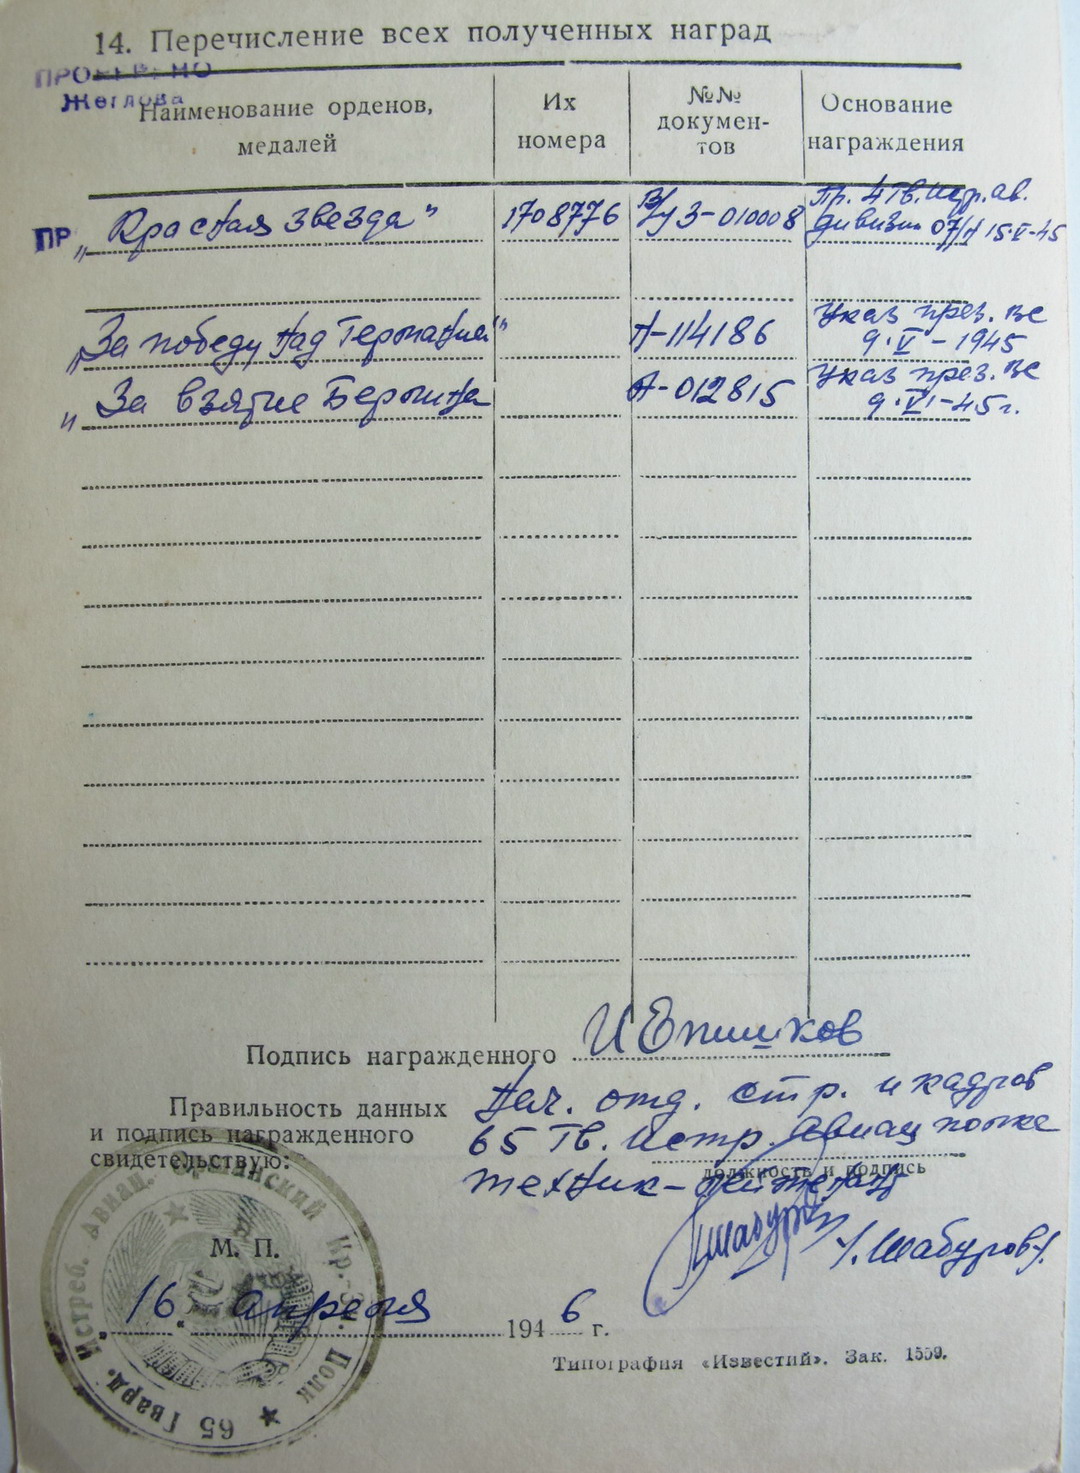 14. Перечисление всех полученных наград
ПРОВЕРЕНО
Жеглова
Наименование орденов, медалей
Их номера
№№ докумен-тов
Основание награждения
ПР
„Красная звезда" 1708776 В/у 3-010008 Пр. 4 Гв. Истр. ав. дивизии 07/н 15-V-45
„За победу над Германией" А-114186 Указ през. ВС 9·V-1945
„За взятие Берлина А-012815 Указ през. ВС 9·VI-45г.
Подпись награжденного И Епишков
Правильность данных
и подпись награжденного
свидетельствую:
Нач. отд. стр. и кадров
65 Гв. Истр. Авиац полка
должность и подпись
техник-лейтенант
/Шабуров/
М. П.
„16" апреля 1946 г.
65 Гвард. Истреб. Авиац. Кр.-Зн. Полк
Типография «Известий». Зак. 1559.